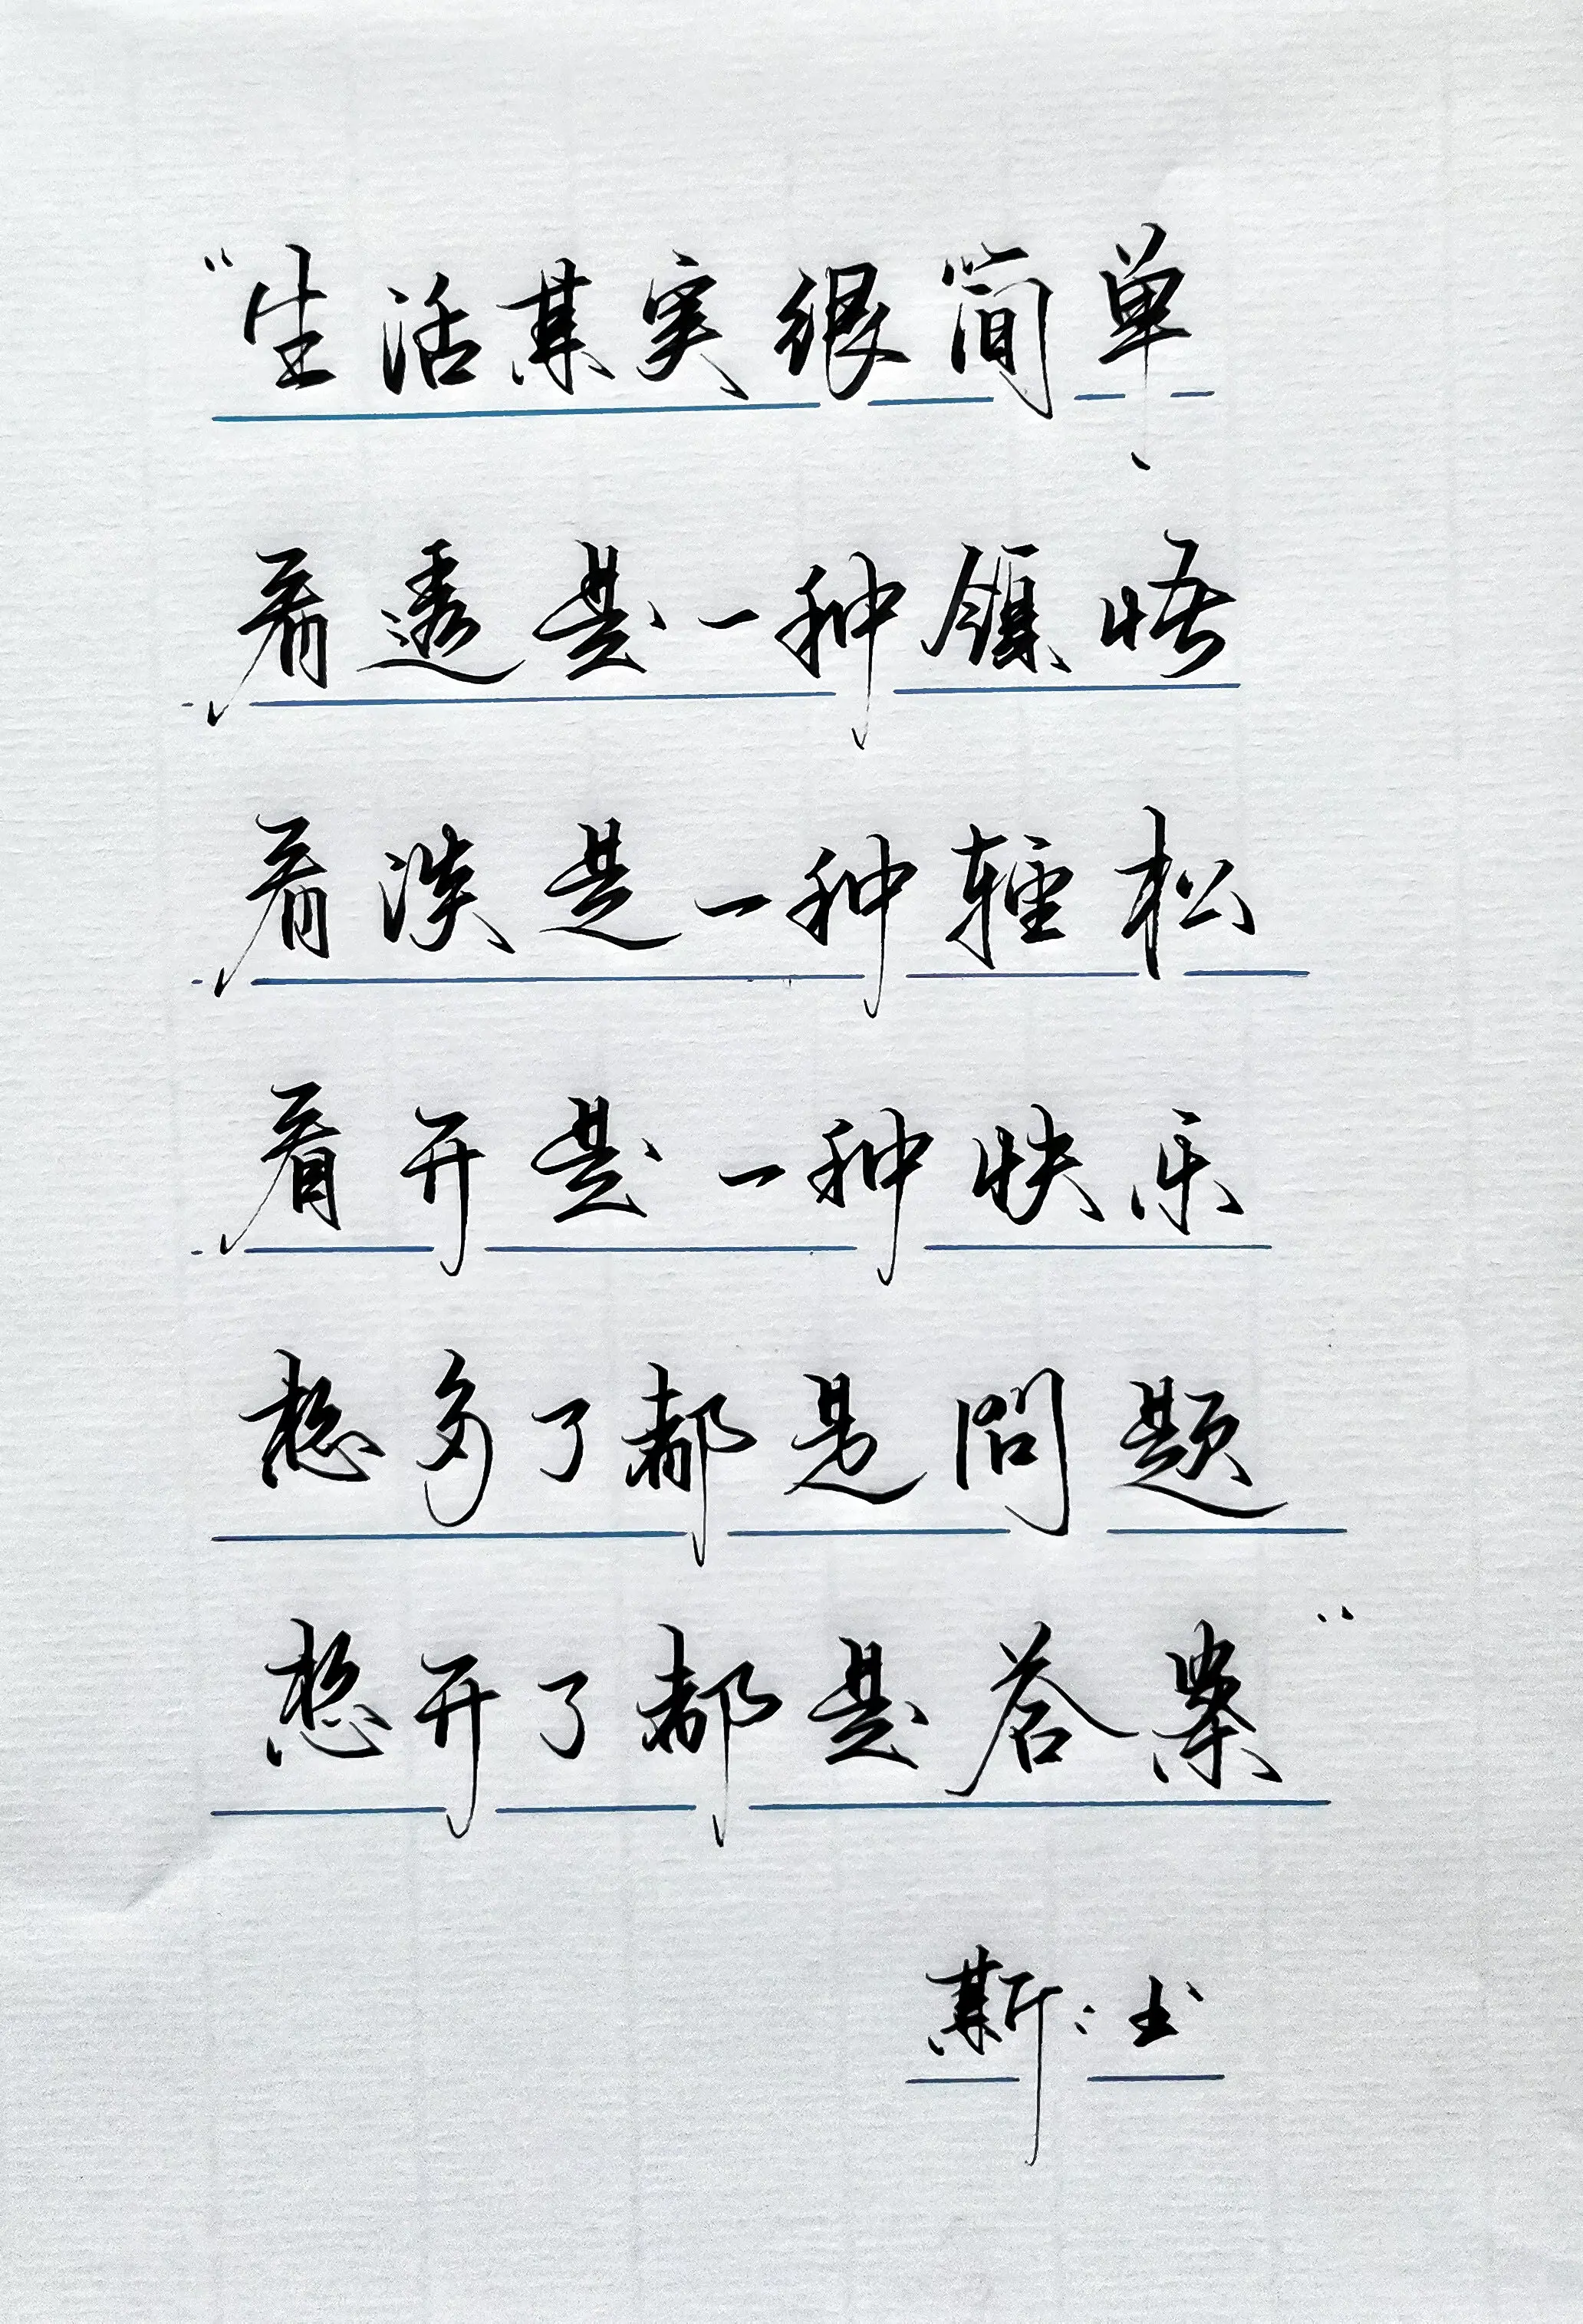 “生活其实很简单、
看透是一种领悟
看淡是一种轻松
看开是一种快乐
想多了都是问题
想开了都是答案”
斯:书